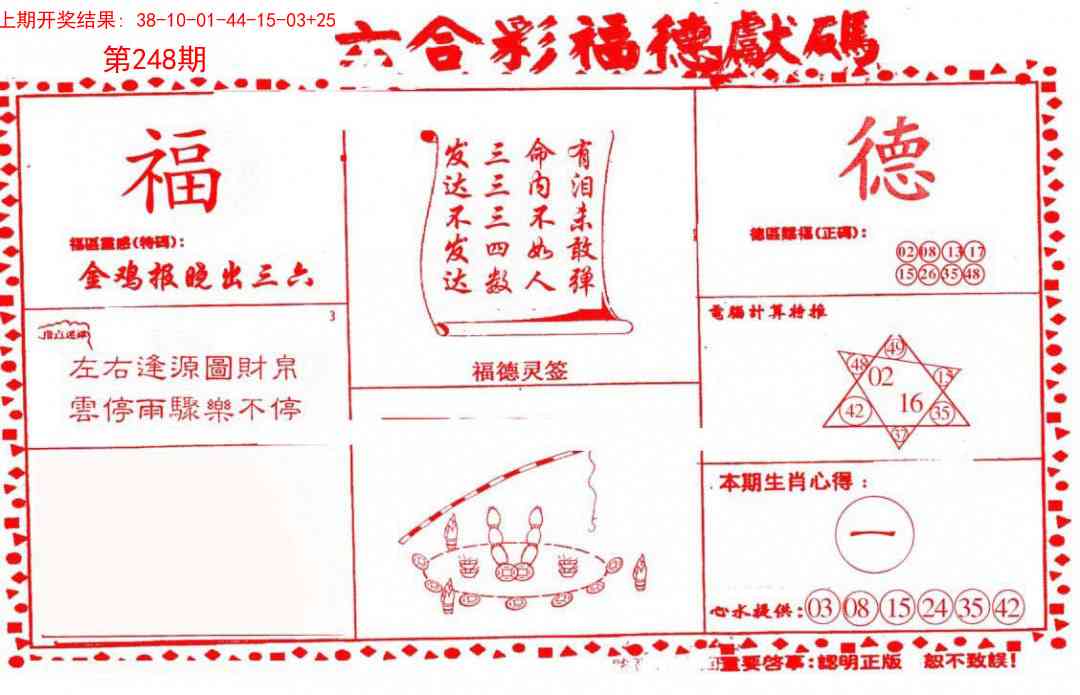 上期开奖结果: 38-10-01-44-15-03+25
第248期
六合彩福德獻碼
福
福區靈感(特碼):
金鸡报晚出三六
3
左右逢源圖財帛
雲停雨驟樂不停
有泪未敢弹
命内不如人
三三三四数
发达不发达
福德灵签
德
德區賜福(正碼):
02 08 13 17
15 26 35 48
電腦計算特推
49
48 02 15
42 16 35
37
本期生肖心得:
一
心水提供: 03 08 15 24 35 42
重要啓事:認明正版 恕不致誤!